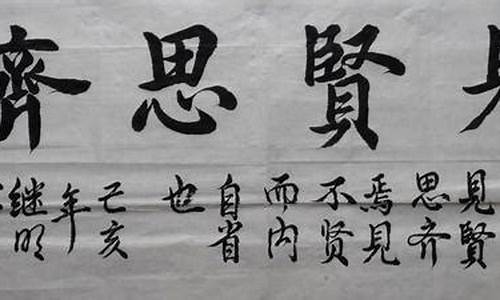 見賢思齊
見賢
思齐
焉見
不贤
而内
自省
也
己亥
年
继明